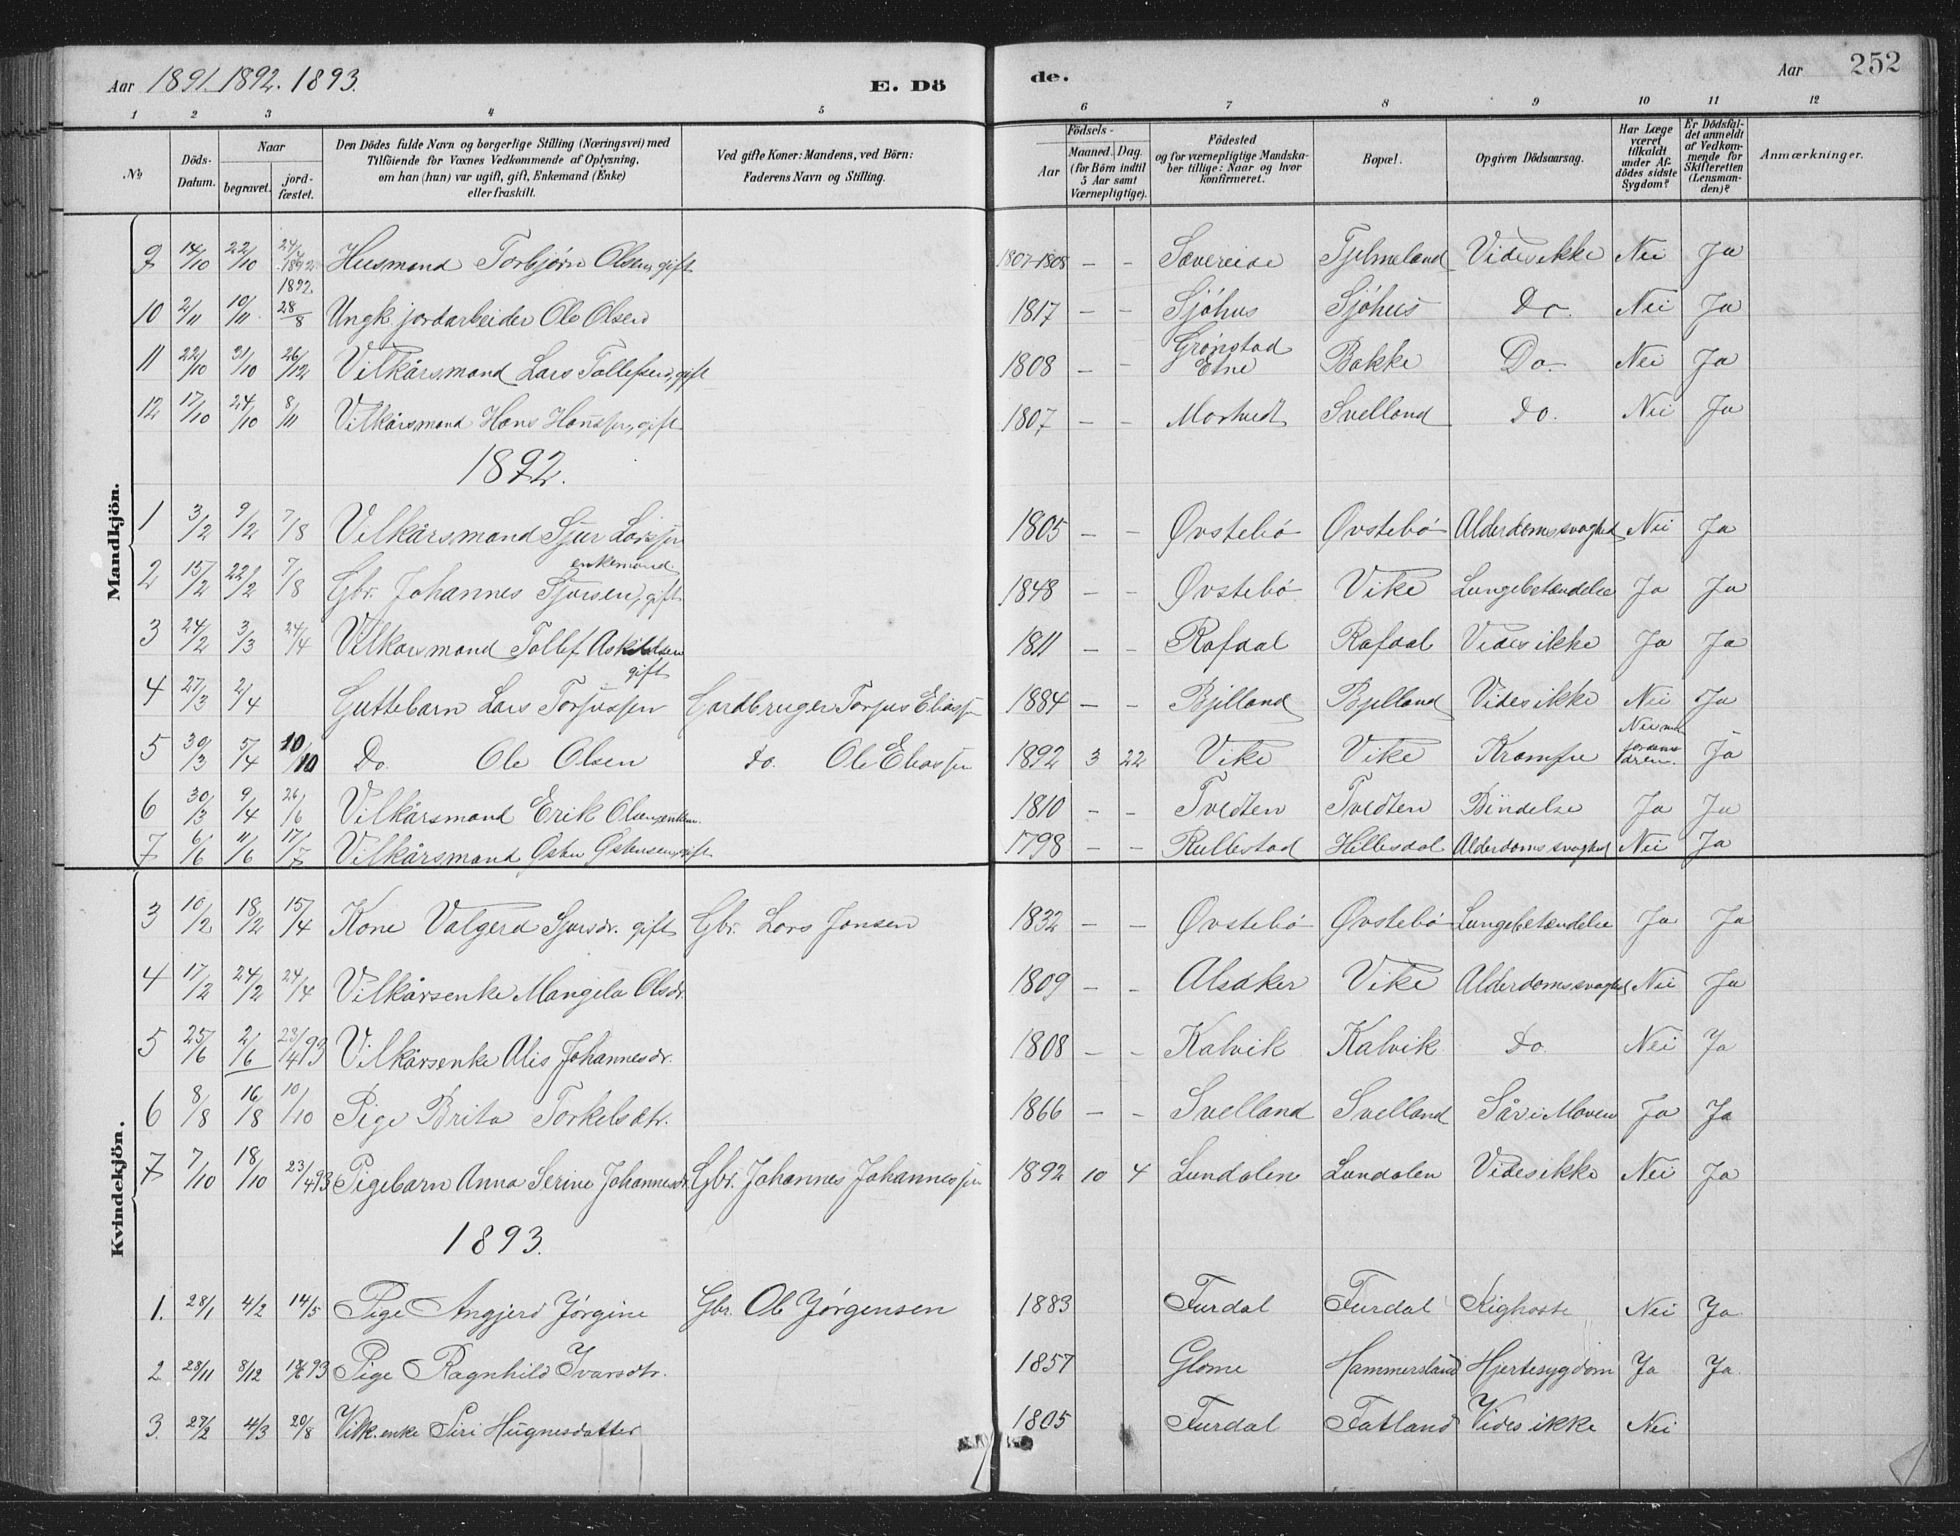 Aar 1891. 1892. 1893. E. Dö de. Aar 252
1 2 3 4 5 6 7 8 9 10 11 12
No. Döds-Datum. Naar begravet. jordfæstet. Den Dödes fulde Navn og borgerlige Stilling (Næringsvei) med Tilföiende for Voxnes Vedkommende af Oplysning, om han (hun) var ugift, gift, Enkemand (Enke) eller fraskilt. Ved gifte Koner: Mandens, ved Börn: Faderens Navn og Stilling. Födsels- Aar Maaned. Dag. (for Börn indtil 5 Aar samt Værnepligtige). Födested og for værnepligtige Mandskaber tillige: Naar og hvor konfirmeret. Bopæl. Opgiven Dödsaarsag. Har Læge været tilkaldt under Afdödes sidste Sygdom? Er Dödsfaldet anmeldt af Vedkommende for Skifteretten (Lensmanden)? Anmærkninger.
Mandkjön.
9 14/10 22/10 24/4 1892 Husmand Torbjörn Olsen, gift 1807-1808 – – Sævereide Tjelmeland Vides ikke Nei Ja
10 2/11 10/11 1892 28/8 Ungk. jordarbeider Ole Olsen 1817 – – Sjöhus Sjöhus Do. Nei Ja
11 22/10 31/10 26/12 Vilkårsmand Lars Tollefsen, gift 1808 – – Grönstad Etne Bakke Do. Nei Ja
12 17/10 24/10 8/11 Vilkårsmand Hans Hanssen, gift 1807 – – Mortvedt Svelland Do. Nei Ja
1892.
1 3/2 9/2 7/8 Vilkårsmand Sjur Larssen enkemand 1805 – – Øvstebö Øvstebö Alderdomssvaghed Nei Ja
2 15/2 22/2 7/8 Gbr. Johannes Sjursen, gift 1848 – – Øvstebö Vike Lungebetændelse Ja Ja
3 24/2 3/3 24/4 Vilkårsmand Tollef Askildsen gift 1811 – – Rafdal Rafdal Vides ikke Ja Ja
4 27/3 2/4 Guttebarn Lars Torjussen Gardbruger Torjus Eliassen 1884 – – Bjelland Bjelland Vides ikke Nei Ja
5 30/3 5/4 10/10 Do. Ole Olsen Do. Ole Eliassen 1892 3 22 Vike Vike Krampe Nei men Jordemoderen. Ja
6 30/3 9/4 26/6 Vilkårsmand Erik Olsen, enkem. 1810 – – Tvedten Tvedten Bindelse Ja Ja
7 6/6 11/6 17/7 Vilkårsmand Østen Østensen, gift 1798 – – Rullestad Hillesdal Alderdomssvaghed Nei Ja
Kvindekjön.
3 10/2 18/2 15/4 Kone Valgerd Sjursdr. gift Gbr. Lars Jonsen 1832 – – Øvstebö Øvstebö Lungebetændelse Ja Ja
4 17/2 24/2 24/4 Vilkårsenke Mangela Olsdr. 1809 – – Alsaker Vike Alderdomssvaghed Nei Ja
5 25/6 2/6 23/4 93 Vilkårsenke Alis Johannesdr. 1808 – – Kalvik Kalvik Do. Nei Ja
6 8/8 16/8 10/10 Pige Brita Torkelsdtr. 1866 – – Svelland Svelland Sår i Maven Ja Ja
7 7/10 18/10 23/4 93 Pigebarn Anna Serine Johannesdr. Gbr. Johannes Johannessen 1892 10 4 Lundalen Lundalen Vides ikke Nei Ja
1893.
1. 28/1 4/2 14/5 Pige Angjerd Jörgine Gbr. Ole Jörgensen 1883 Furdal Furdal Kighoste Nei Ja
2 28/11 8/12 93 Pige Ragnhild Ivarsdtr. 1857 Glome Hammersland Hjertesygdom Ja Ja
3. 27/2 4/3 20/8 Vilk.enke Siri Hugnesdatter 1805 Furdal Fatland Vides ikke Nei